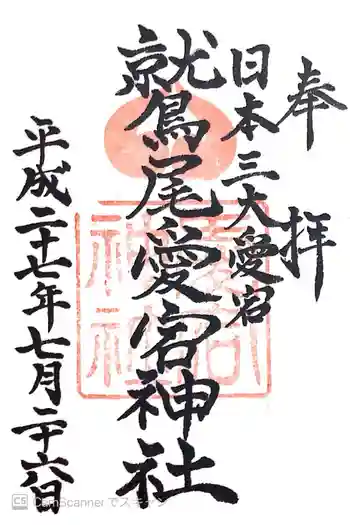 奉拝
日本三大愛宕
鷲尾愛宕神社
平成二十七年七月二十六日
愛宕神社
CS CamScanner でスキャン